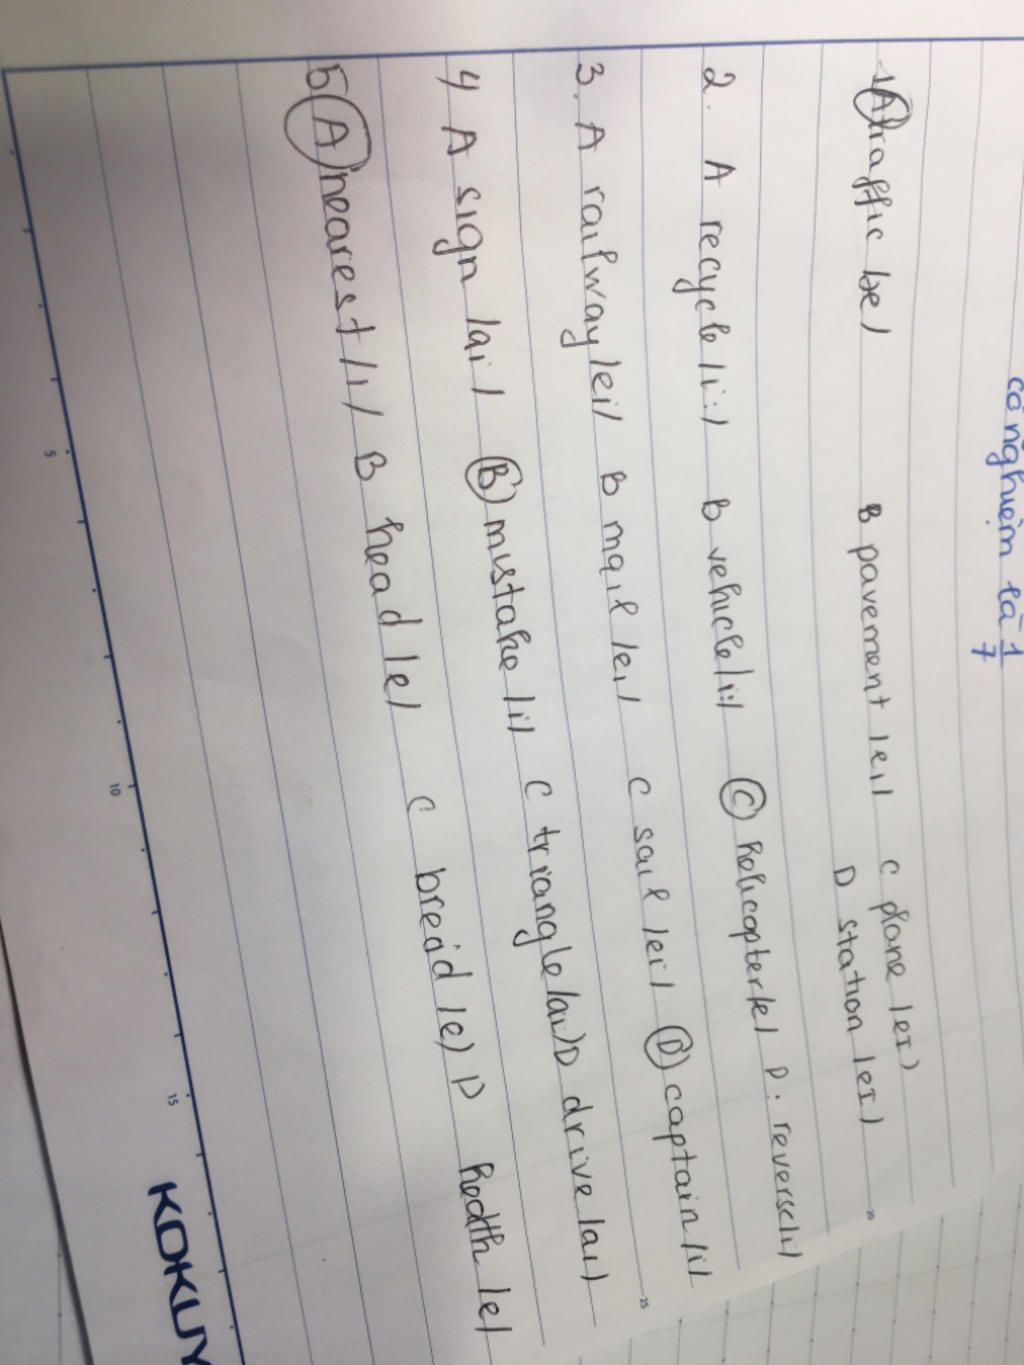 có nghiệm là 1/7
1 A traffic /æ/ B pavement /ei/ C plane /eI/
D station /eI/
2. A recycle /i:/ B vehicle /i:/ C helicopter /e/ D. reverse /i/
3. A railway /ei/ B mail /ei/ C sail /ei/ D captain /i/
4 A sign /ai/ B mistake /i/ C triangle /ai/ D drive /ai/
5 A nearest /i/ B head /e/ C bread /e/ D health /e/
5 10 15 20 25
KOKUY